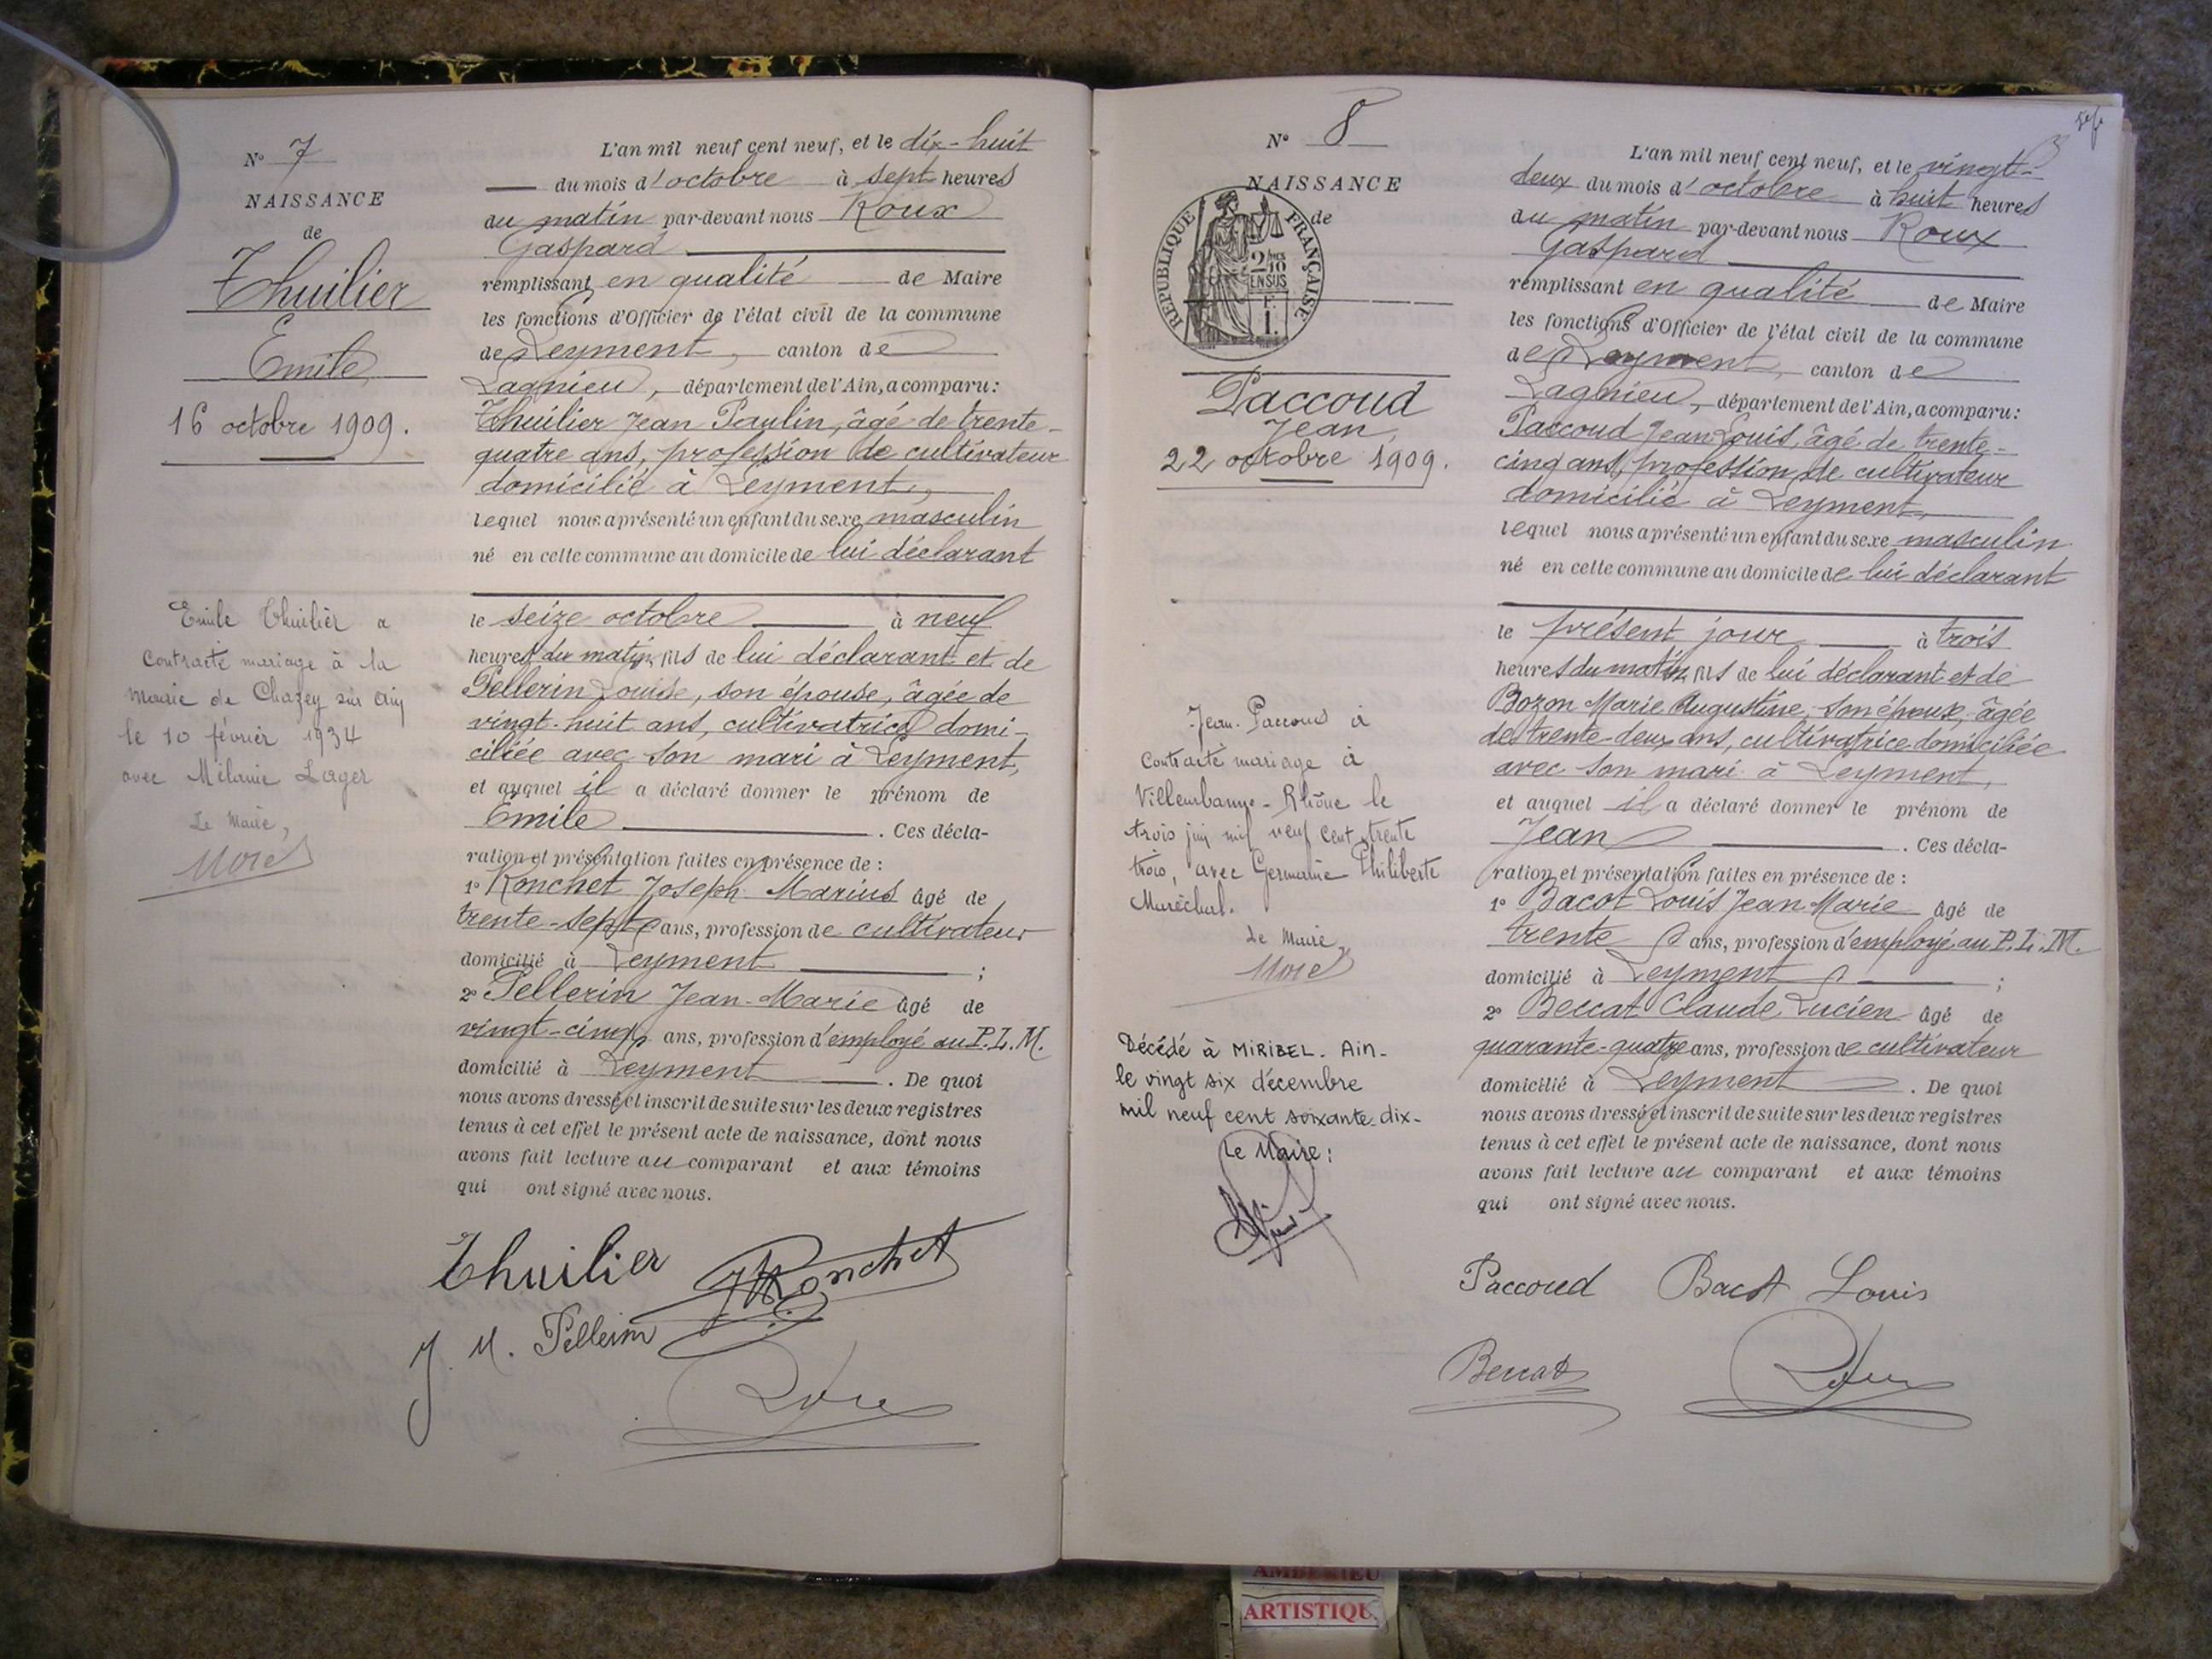 N° 7
NAISSANCE
de
Thuilier
Emile
16 octobre 1909.
Emile Thuilier a
contracté mariage à la
mairie de Chazey sur Ain
le 10 février 1934
avec Mélanie Lager
Le Maire,
Morel
L'an mil neuf cent neuf, et le dix-huit
du mois d'octobre à sept heures
du matin par-devant nous Roux
Gaspard
remplissant en qualité de Maire
les fonctions d'Officier de l'état civil de la commune
de Leyment, canton de
Lagnieu, département de l'Ain, a comparu:
Thuilier Jean Paulin, âgé de trente-
quatre ans, profession de cultivateur
domicilié à Leyment,
lequel nous a présenté un enfant du sexe masculin
né en cette commune au domicile de lui déclarant
le seize octobre à neuf
heures du matin, fils de lui déclarant et de
Pellerin Louise, son épouse, âgée de
vingt-huit ans, cultivatrice domi-
ciliée avec son mari à Leyment,
et auquel il a déclaré donner le prénom de
Emile . Ces décla-
ration et présentation faites en présence de :
1° Ronchet Joseph Marius âgé de
trente-sept ans, profession de cultivateur
domicilié à Leyment ;
2° Pellerin Jean-Marie âgé de
vingt-cinq ans, profession d'employé au P.L.M.
domicilié à Leyment . De quoi
nous avons dressé et inscrit de suite sur les deux registres
tenus à cet effet le présent acte de naissance, dont nous
avons fait lecture au comparant et aux témoins
qui ont signé avec nous.
Thuilier Ronchet
J. M. Pellerin
Roux
N° 8
NAISSANCE
de
RÉPUBLIQUE FRANÇAISE
2/10
EN SUS
F.
1.
Paccoud
Jean,
22 octobre 1909.
Jean Paccoud a
contracté mariage à
Villeurbanne - Rhône le
trois juin mil neuf cent trente
trois, avec Germaine Philiberte
Maréchal.
Le Maire,
Morel
Décédé à MIRIBEL. Ain.
le vingt six décembre
mil neuf cent soixante-dix-
Le Maire :
L'an mil neuf cent neuf, et le vingt-
deux du mois d'octobre à huit heures
du matin par-devant nous Roux
Gaspard
remplissant en qualité de Maire
les fonctions d'Officier de l'état civil de la commune
de Leyment, canton de
Lagnieu, département de l'Ain, a comparu:
Paccoud Jean Louis, âgé de trente-
cinq ans, profession de cultivateur
domicilié à Leyment,
lequel nous a présenté un enfant du sexe masculin
né en cette commune au domicile de lui déclarant
le présent jour à trois
heures du matin, fils de lui déclarant et de
Bozon Marie Augustine, son épouse, âgée
de trente-deux ans, cultivatrice domiciliée
avec son mari à Leyment,
et auquel il a déclaré donner le prénom de
Jean . Ces décla-
ration et présentation faites en présence de :
1° Bacot Louis Jean Marie âgé de
trente ans, profession d'employé au P.L.M.
domicilié à Leyment ;
2° Beccat Claude Lucien âgé de
quarante-quatre ans, profession de cultivateur
domicilié à Leyment . De quoi
nous avons dressé et inscrit de suite sur les deux registres
tenus à cet effet le présent acte de naissance, dont nous
avons fait lecture au comparant et aux témoins
qui ont signé avec nous.
Paccoud Bacot Louis
Beccat Roux
AMBERIEU
ARTISTIQU